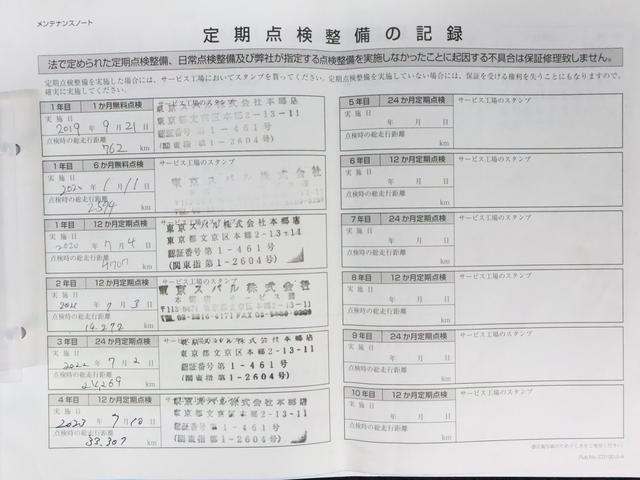 メンテナンスノート
定期点検整備の記録
法で定められた定期点検整備、日常点検整備及び弊社が指定する点検整備を実施しなかったことに起因する不具合は保証修理致しません。
定期点検整備を実施した場合には、サービス工場においてスタンプを貰ってください。定期点検整備を実施していない場合には、保証を受ける権利を失うことにもなりますので、
確実に実施してください。
1年目 1か月無料点検
実施日
2019年9月21日
点検時の総走行距離
762 km
東京スバル株式会社本郷店
東京都文京区本郷2-13-11
認証番号第1-461号
(関東指第1-2604号)
1年目 6か月無料点検 サービス工場のスタンプ
実施日
2020年1月11日
点検時の総走行距離
km
東京スバル株式会社
1年目 12か月定期点検 サービス工場のスタンプ
実施日
2020年7月4日
点検時の総走行距離
km
東京スバル株式会社本郷店
東京都文京区本郷2-13-11
認証番号第1-461号
(関東指第1-2604号)
2年目 12か月定期点検
実施日
2021年7月3日
点検時の総走行距離
14,272 km
東京スバル株式会社
3年目 24か月定期点検
実施日
2022年7月2日
点検時の総走行距離
24,269 km
東京スバル株式会社本郷店
東京都文京区本郷2-13-11
認証番号第1-461号
(関東指第1-2604号)
4年目 12か月定期点検
実施日
2023年7月10日
点検時の総走行距離
33,307 km
東京スバル株式会社本郷店
東京都文京区本郷2-13-11
認証番号第1-461号
(関東指第1-2604号)
5年目 24か月定期点検 サービス工場のスタンプ
実施日
年 月 日
点検時の総走行距離
km
6年目 12か月定期点検 サービス工場のスタンプ
実施日
年 月 日
点検時の総走行距離
km
7年目 24か月定期点検 サービス工場のスタンプ
実施日
年 月 日
点検時の総走行距離
km
8年目 12か月定期点検 サービス工場のスタンプ
実施日
年 月 日
点検時の総走行距離
km
9年目 24か月定期点検 サービス工場のスタンプ
実施日
年 月 日
点検時の総走行距離
km
10年目 12か月定期点検 サービス工場のスタンプ
実施日
年 月 日
点検時の総走行距離
km